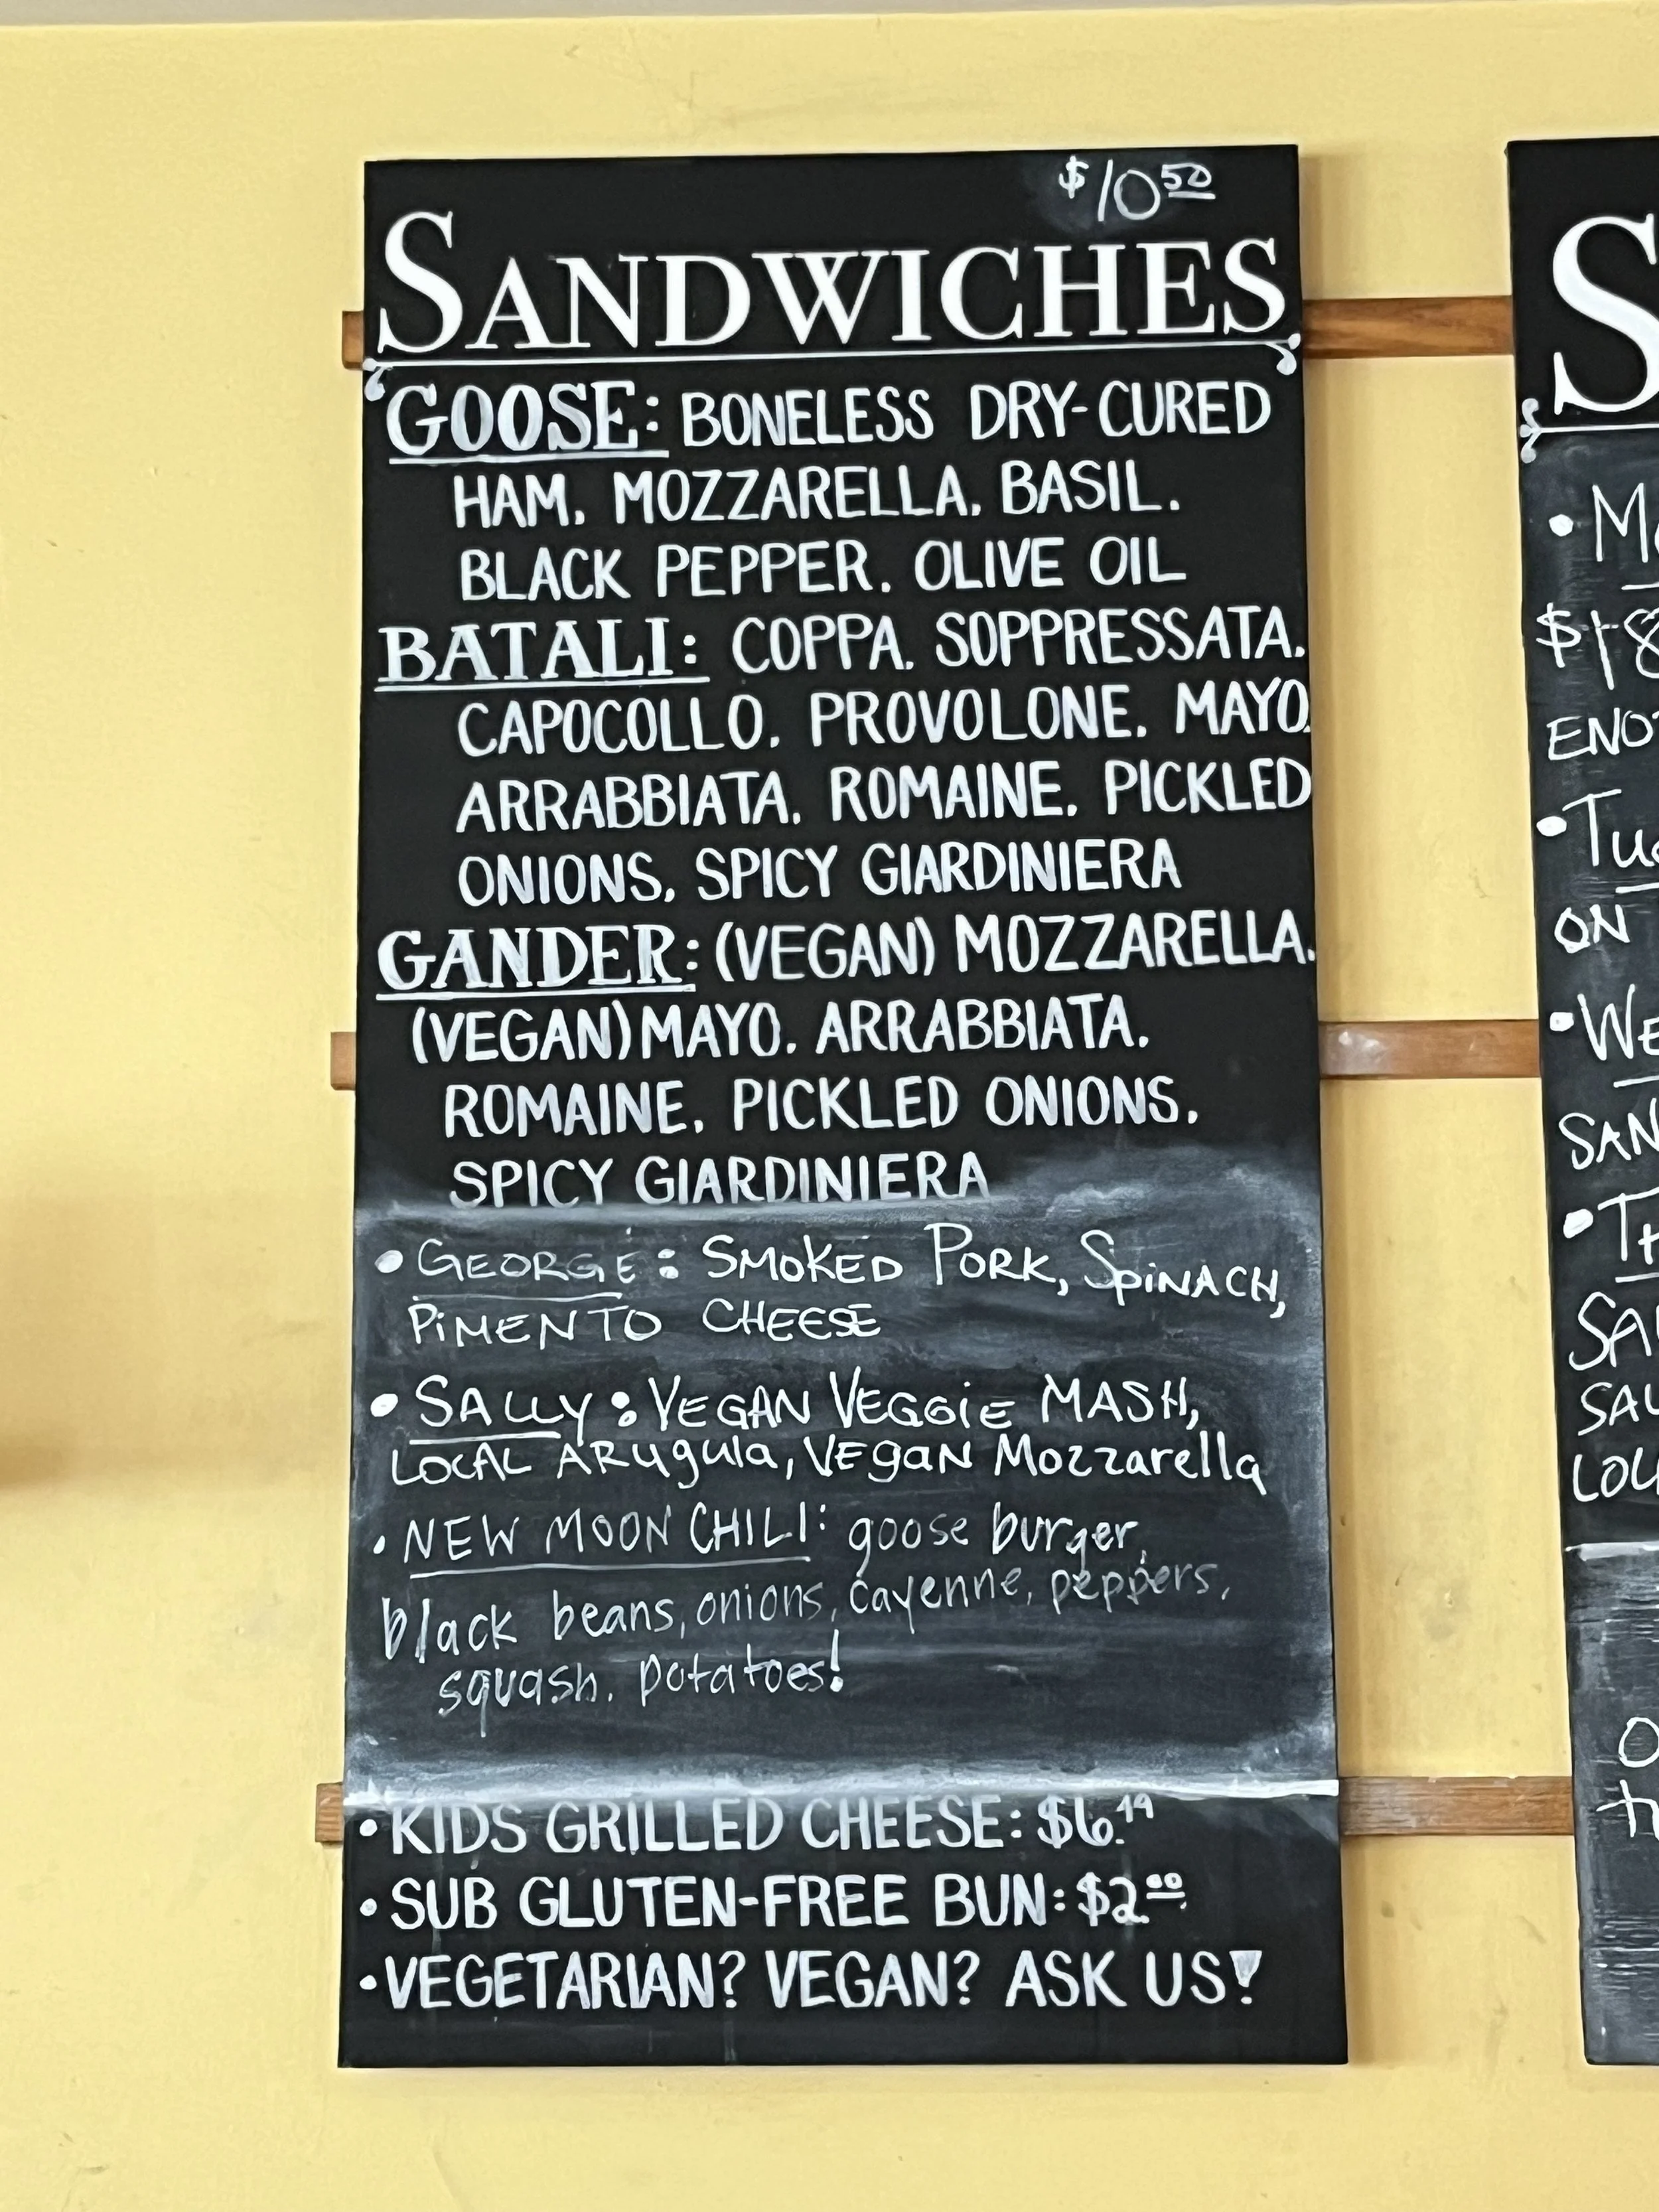 $10.50
SANDWICHES
GOOSE: BONELESS DRY-CURED
HAM, MOZZARELLA, BASIL,
BLACK PEPPER, OLIVE OIL
BATALI: COPPA, SOPPRESSATA,
CAPOCOLLO, PROVOLONE, MAYO,
ARRABBIATA, ROMAINE, PICKLED
ONIONS, SPICY GIARDINIERA
GANDER: (VEGAN) MOZZARELLA,
(VEGAN) MAYO, ARRABBIATA,
ROMAINE, PICKLED ONIONS,
SPICY GIARDINIERA
• GEORGE: SMOKED PORK, SPiNACH,
PiMENTO CHEESE
• SALLY: VEGAN VEGGiE MASH,
LOCAL ARugula, VEgaN Mozzarella
• NEW MOON CHILI: goose burger,
black beans, onions, cayenne, peppers,
squash, potatoes!
• KIDS GRILLED CHEESE: $6.49
• SUB GLUTEN-FREE BUN: $2.00
• VEGETARIAN? VEGAN? ASK US!
S
$18
ON